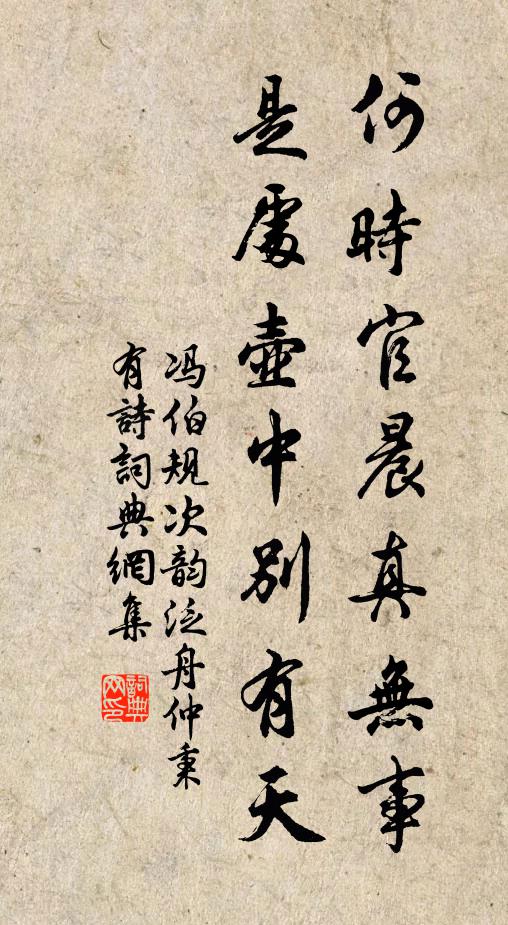 何時官晨真無事
是處壺中別有天
冯伯規次韵泛舟仲秉
有詩詞典網集
詞典
网印